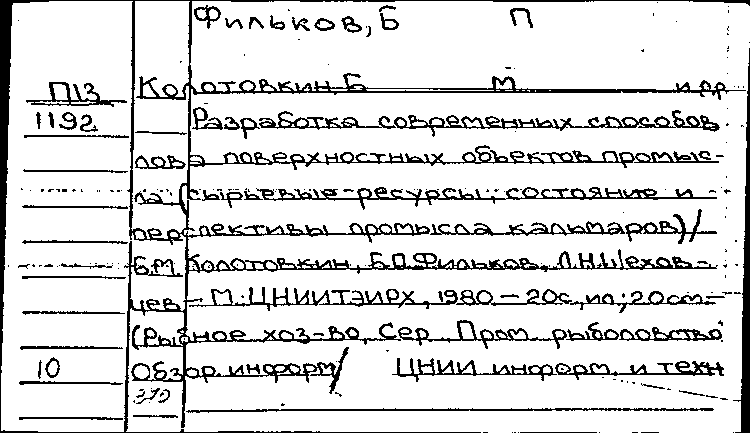 Фильков, Б П
Колотовкин, Б М и др
П13
1192 Разработка современных способов
лова поверхностных объектов промыс-
ла (сырьевые ресурсы; состояние и
перспективы промысла кальмаров) /
Б.М. Колотовкин, Б.П. Фильков, Л.Н. Шехов-
цев – М.: ЦНИИТЭИРХ, 1980 – 20с, ил; 20см –
(Рыбное хоз-во, Сер Пром рыболовство
10 Обзор. информ / ЦНИИ информ. и техн